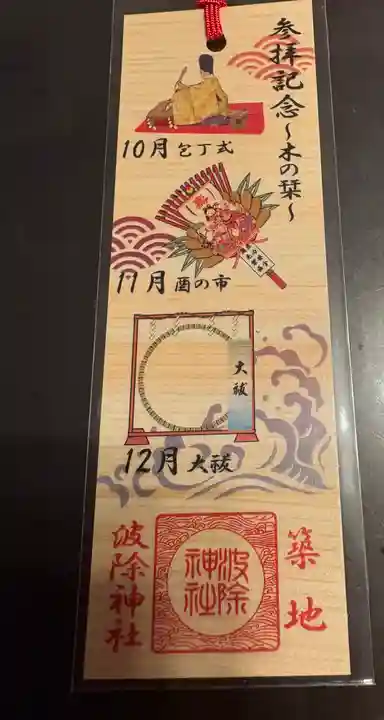 参拝記念〜木の栞〜
10月 包丁式
11月 酉の市
大祓
12月 大祓
築地
波除神社
波除神社